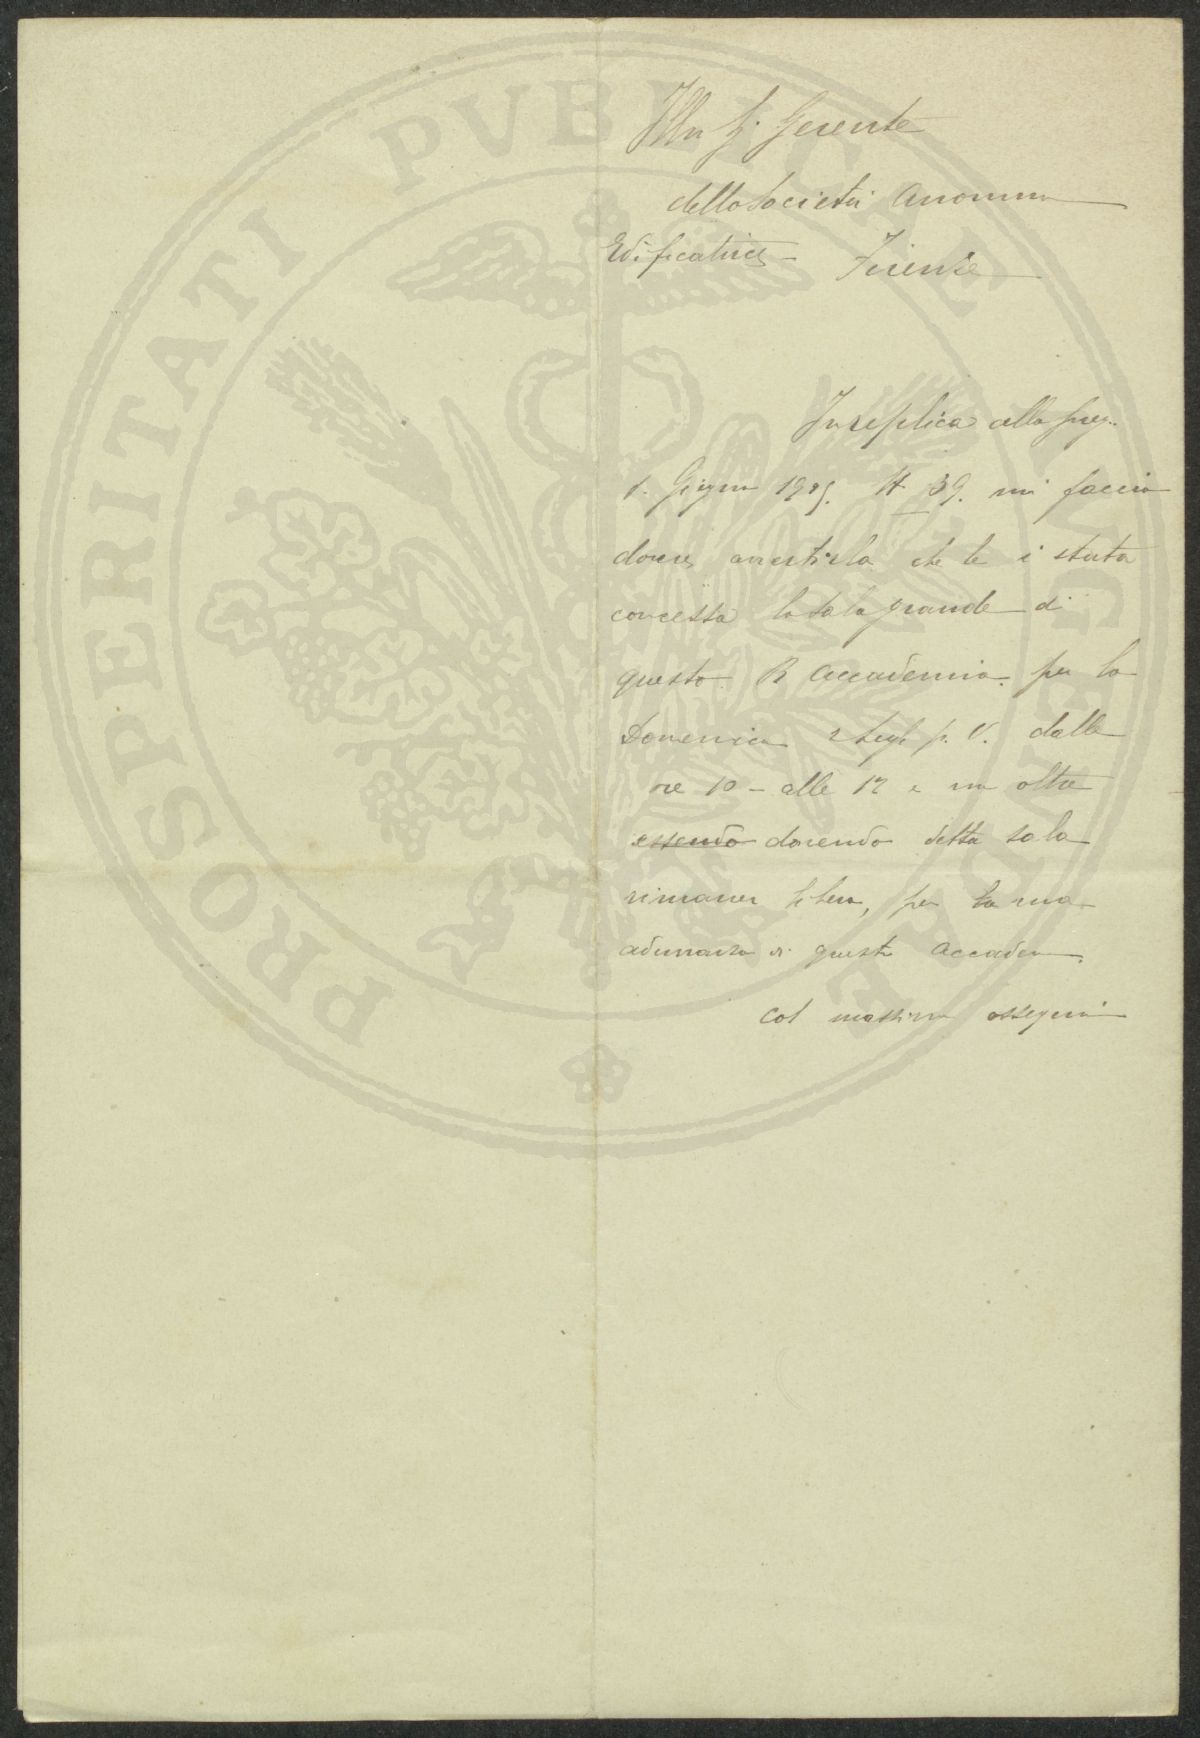 Illm Sig. Gerente
della Società Anonima
Edificatrice – Firenze
In replica alla preg.
1. Giugno N 39. mi faccio
dovere avvertirla che le è stata
concessa la sala grande di
questa R Accademia per la
Domenica 2 Lugl p. V. dalle
ore 10 – alle 12 e non oltre
essendo dovendo detta sala
rimaner libera, per una
adunanza di questa Accadem.
Col massimo ossequio
PROSPERITATI PVBLICAE AVGENDAE